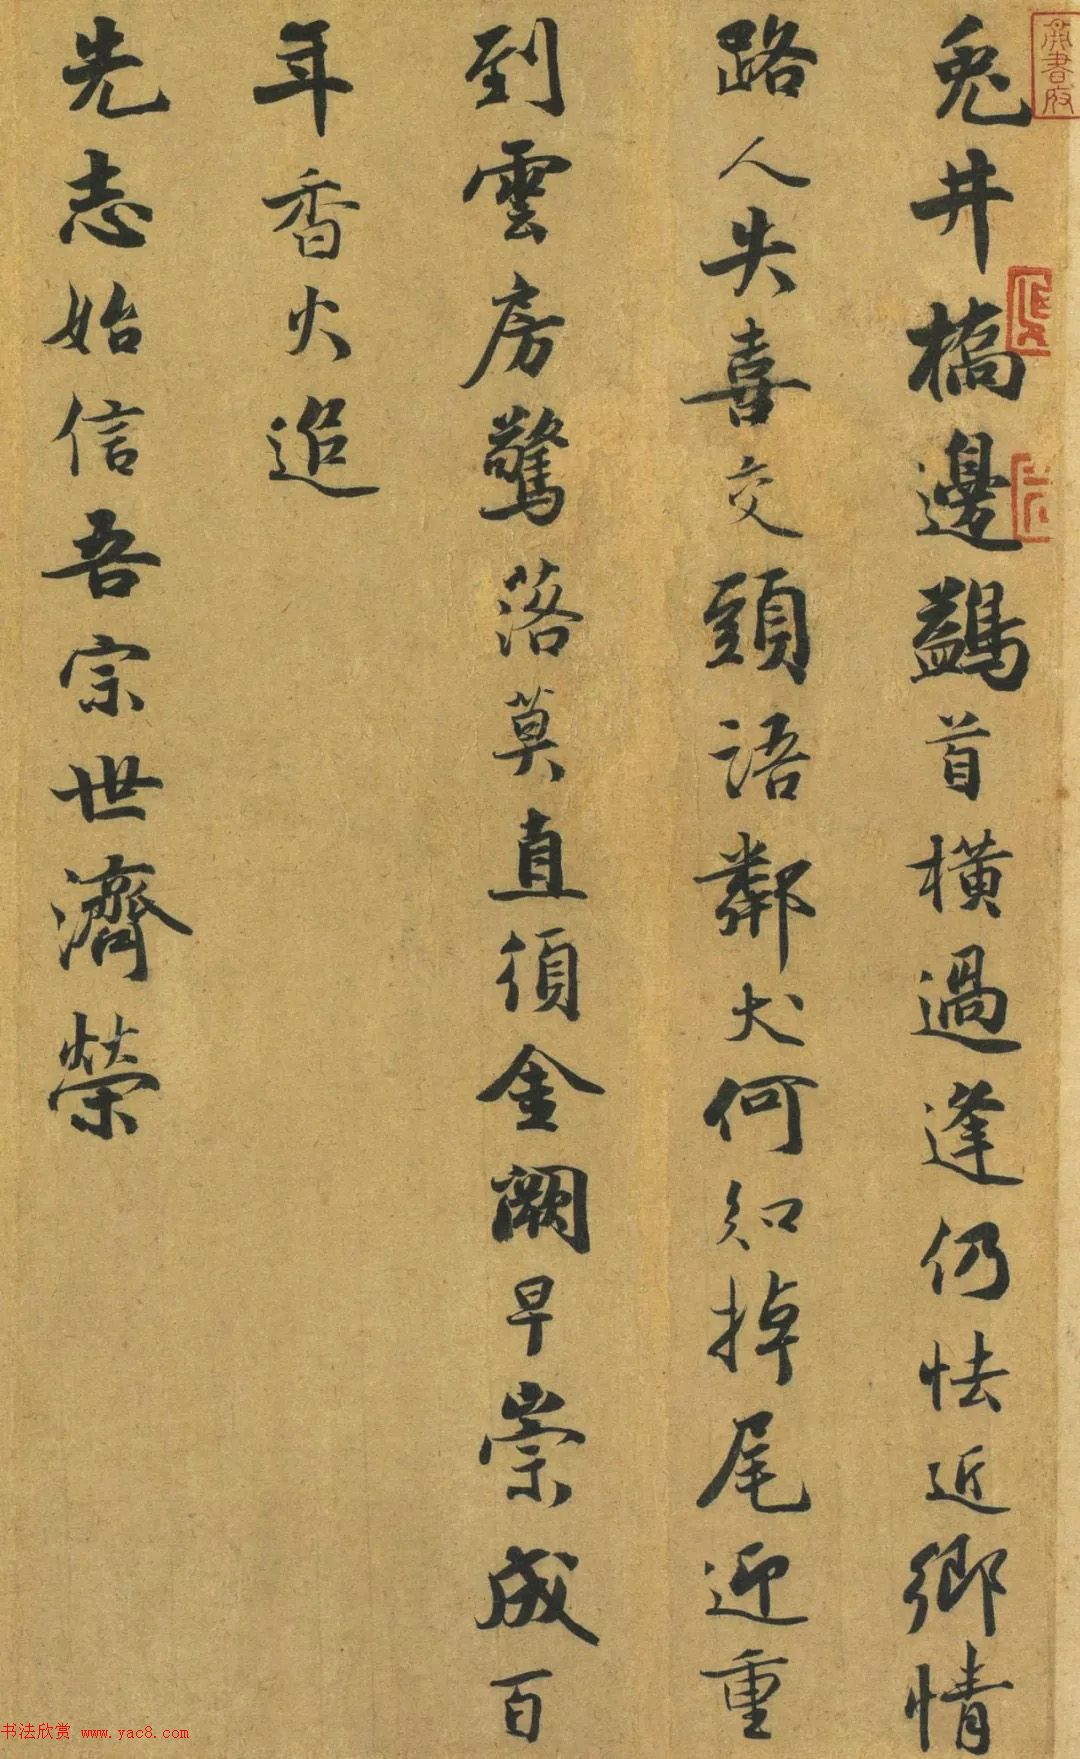 兎井橋邊鷁首橫過逢仍怯近鄉情
路人失喜交頭語鄰犬何知掉尾迎重
到雲房驚落莫直須金闕早崇成百
年香火追
先志始信吾宗世濟榮
書府
书法欣赏 www.yac8.com